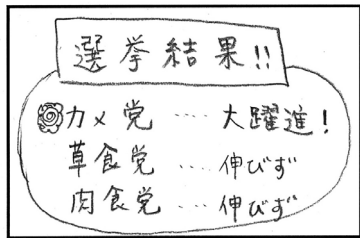 選挙結果!!
カメ党 … 大躍進!
草食党 … 伸びず
肉食党 … 伸びず